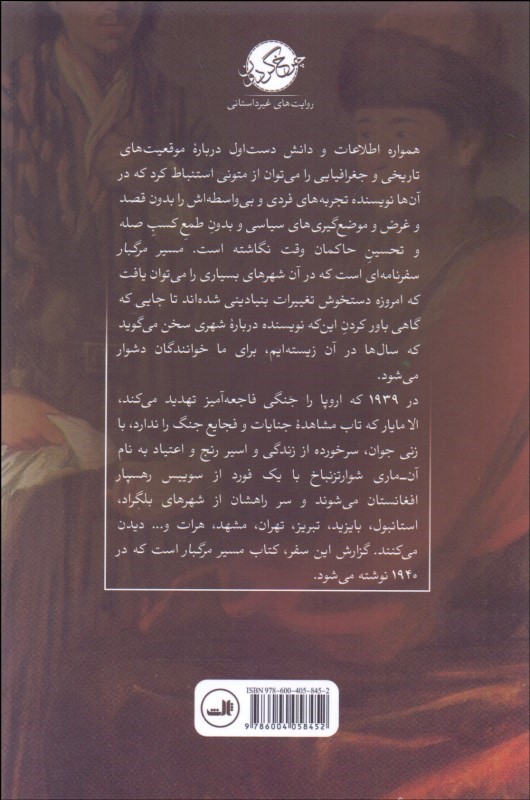 چرخ‌گردون
روایت‌های غیرداستانی
همواره اطلاعات و دانش دست‌اول دربارهٔ موقعیت‌های
تاریخی و جغرافیایی را می‌توان از متونی استنباط کرد که در
آن‌ها نویسنده تجربه‌های فردی و بی‌واسطه‌اش را بدون قصد
و غرض و موضع‌گیری‌های سیاسی و بدونِ طمعِ کسبِ صله
و تحسینِ حاکمان وقت نگاشته است. مسیر مرگبار
سفرنامه‌ای است که در آن شهرهای بسیاری را می‌توان یافت
که امروزه دستخوش تغییرات بنیادینی شده‌اند تا جایی که
گاهی باور کردنِ این‌که نویسنده دربارهٔ شهری سخن می‌گوید
که سال‌ها در آن زیسته‌ایم، برای ما خوانندگان دشوار
می‌شود.
در ۱۹۳۹ که اروپا را جنگی فاجعه‌آمیز تهدید می‌کند،
الا مایار که تاب مشاهدهٔ جنایات و فجایع جنگ را ندارد، با
زنی جوان، سرخورده از زندگی و اسیر رنج و اعتیاد به نام
آن‌ـ‌ماری شوارتزنباخ با یک فورد از سوییس رهسپار
افغانستان می‌شوند و سر راهشان از شهرهای بلگراد،
استانبول، بایزید، تبریز، تهران، مشهد، هرات و... دیدن
می‌کنند. گزارش این سفر، کتاب مسیر مرگبار است که در
۱۹۴۰ نوشته می‌شود.
ISBN 978-600-405-845-2
ثالث
9 786004 058452